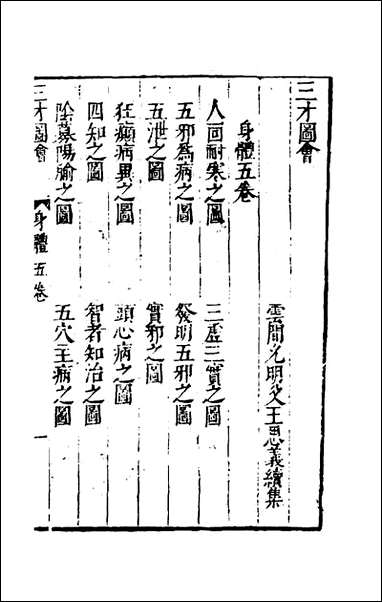 三才圖會
雲間允明父王思義續集
身體五卷
人面耐寒之圖
三虛三實之圖
五邪為病之圖
發明五邪之圖
五泄之圖
實邪之圖
狂癲病異之圖
頭心病之圖
四知之圖
智者知治之圖
陰募陽腧之圖
五穴主病之圖
三才圖會
身體五卷
一